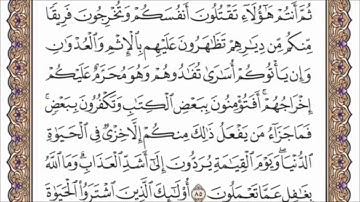 ثُمَّ أَنتُمْ هَٰٓؤُلَآءِ تَقْتُلُونَ أَنفُسَكُمْ وَتُخْرِجُونَ فَرِيقًا
مِّنكُم مِّن دِيَٰرِهِمْ تَظَٰهَرُونَ عَلَيْهِم بِٱلْإِثْمِ وَٱلْعُدْوَٰنِ
وَإِن يَأْتُوكُمْ أُسَٰرَىٰ تُفَٰدُوهُمْ وَهُوَ مُحَرَّمٌ عَلَيْكُمْ
إِخْرَاجُهُمْ ۚ أَفَتُؤْمِنُونَ بِبَعْضِ ٱلْكِتَٰبِ وَتَكْفُرُونَ بِبَعْضٍ ۚ
فَمَا جَزَآءُ مَن يَفْعَلُ ذَٰلِكَ مِنكُمْ إِلَّا خِزْىٌ فِى ٱلْحَيَوٰةِ
ٱلدُّنْيَا ۖ وَيَوْمَ ٱلْقِيَٰمَةِ يُرَدُّونَ إِلَىٰٓ أَشَدِّ ٱلْعَذَابِ ۗ وَمَا ٱللَّهُ
بِغَٰفِلٍ عَمَّا تَعْمَلُونَ ٨٥ أُو۟لَٰٓئِكَ ٱلَّذِينَ ٱشْتَرَوُا۟ ٱلْحَيَوٰةَ